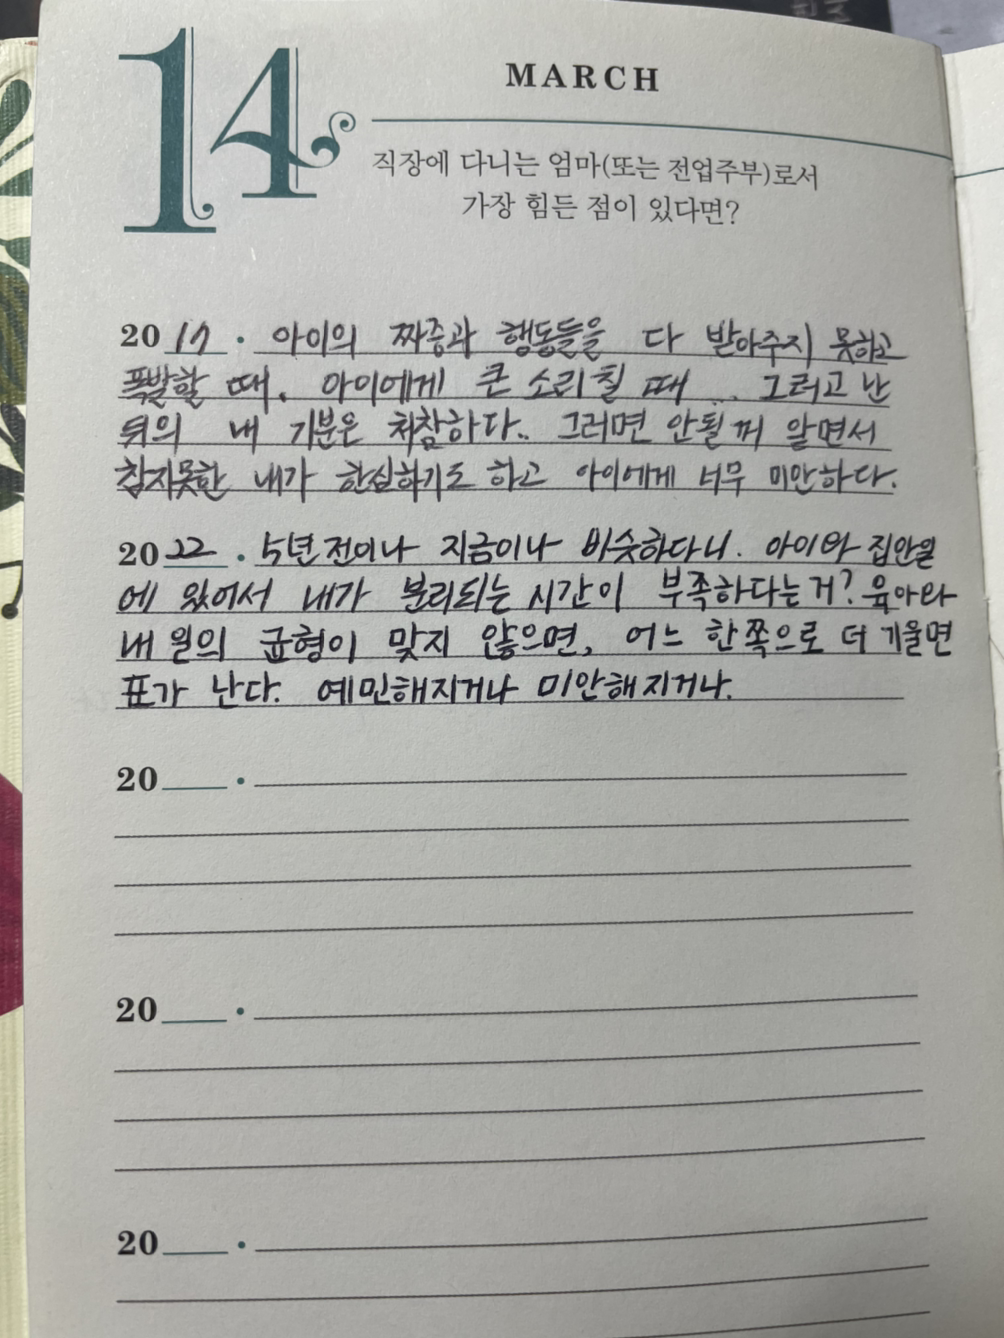 14
MARCH
직장에 다니는 엄마(또는 전업주부)로서
가장 힘든 점이 있다면?
2017 · 아이의 짜증과 행동들을 다 받아주지 못하고
폭발할 때. 아이에게 큰 소리칠 때... 그러고 난
뒤의 내 기분은 처참하다.. 그러면 안될꺼 알면서
참지못한 내가 한심하기도 하고 아이에게 너무 미안하다.
2022 · 5년 전이나 지금이나 비슷하다니. 아이와 집안일
에 있어서 내가 분리되는 시간이 부족하다는거? 육아와
내 일의 균형이 맞지 않으면, 어느 한쪽으로 더 기울면
표가 난다. 예민해지거나 미안해지거나.
20 ·
20 ·
20 ·